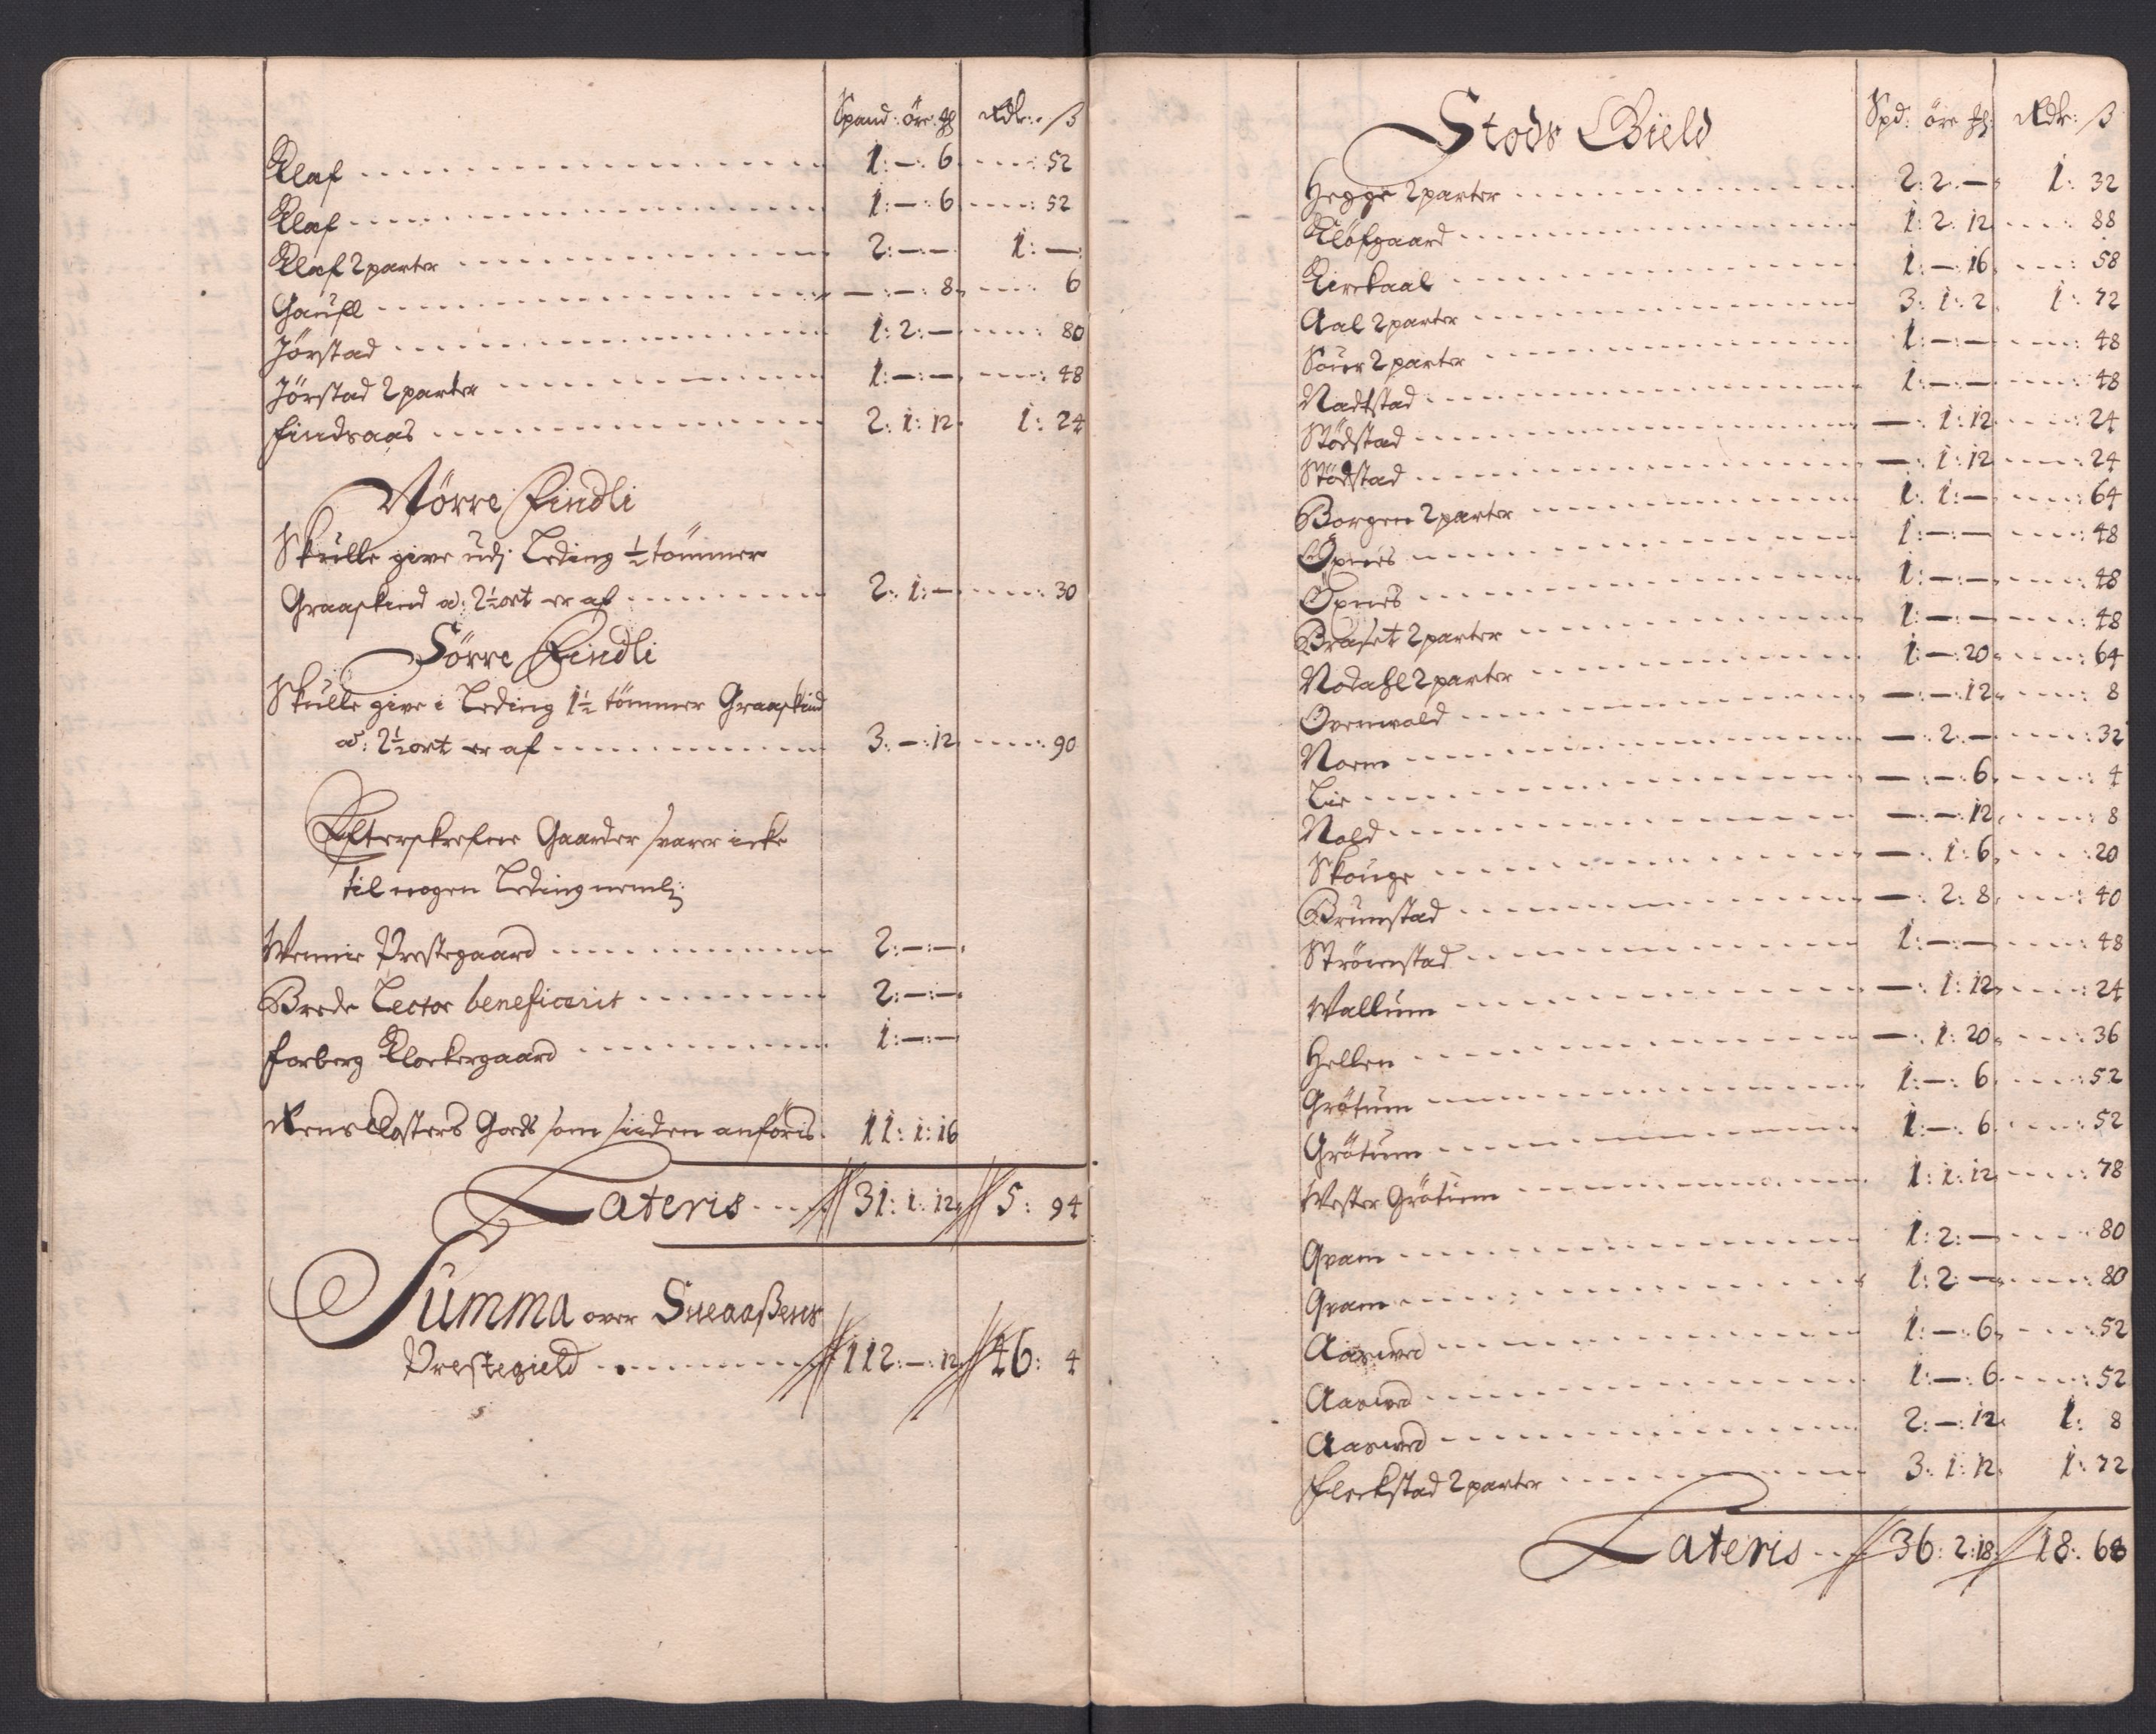 Spand: öre: ₰ Rdr: ß
Klaf 1: —: 6 52
Klaf 1: —: 6 52
Klaf 2 parter 2: —: — 1: —
Gaufl —: —: 8 6
Jörstad 1: 2: — 80
Jörstad 2 parter 1: —: — 48
Findsaas 2: 1: 12 1: 24
Nörre Findli
Skulle give udj Leding ½ tömmer
Graaskind a: 2½ ort er af 2: 1: — 30
Sörre Findli
Skulle give i Leding 1½ tömmer Graaskind
a: 2½ ort er af 3: —: 12 90
Efterskrefne Gaarder svarer icke
til nogen Leding nemlj:
Wennie Prestegaard 2: —: —
Brede Lector beneficerit 2: —: —
Forberg Klockergaard 1: —: —
Rens Closters Gods som siden anföris 11: 1: 16
Lateris 31: 1: 12 5: 94
Summa over Sneaaßens
Prestegield 112: —: 12 46: 4
Stods Gield
Spd: öre ₰: Rdr: ß
Hegge 2 parter 2: 2: — 1: 32
Kløfgaard 1: 2: 12 88
Kirckaal 1: —: 16 58
Aal 2 parter 3: 1: 2 1: 72
Souer 2 parter 1: —: — 48
Nadtstad 1: —: — 48
Stödstad —: 1: 12 24
Stödstad —: 1: 12 24
Borgen 2 parter 1: 1: — 64
Öpnes 1: —: — 48
Öpnes 1: —: — 48
Braset 2 parter 1: —: — 48
Nodahl 2 parter 1: —: 20 64
Overwald —: —: 12 8
Norm —: 2: — 32
Lie —: —: 6 4
Nold —: —: 12 8
Skouge —: 1: 6 20
Brunstad —: 2: 8 40
Strömstad 1: —: — 48
Wallum —: 1: 12 24
Hellen —: 1: 20 36
Grötum 1: —: 6 52
Grötum 1: —: 6 52
Wester Grötum 1: 1: 12 78
Qvam 1: 2: — 80
Qvam 1: 2: — 80
Aasved 1: —: 6 52
Aasved 1: —: 6 52
Aasved 2: —: 12 1: 8
Fleckstad 2 parter 3: 1: 12 1: 72
Lateris 36: 2: 18 18: 68